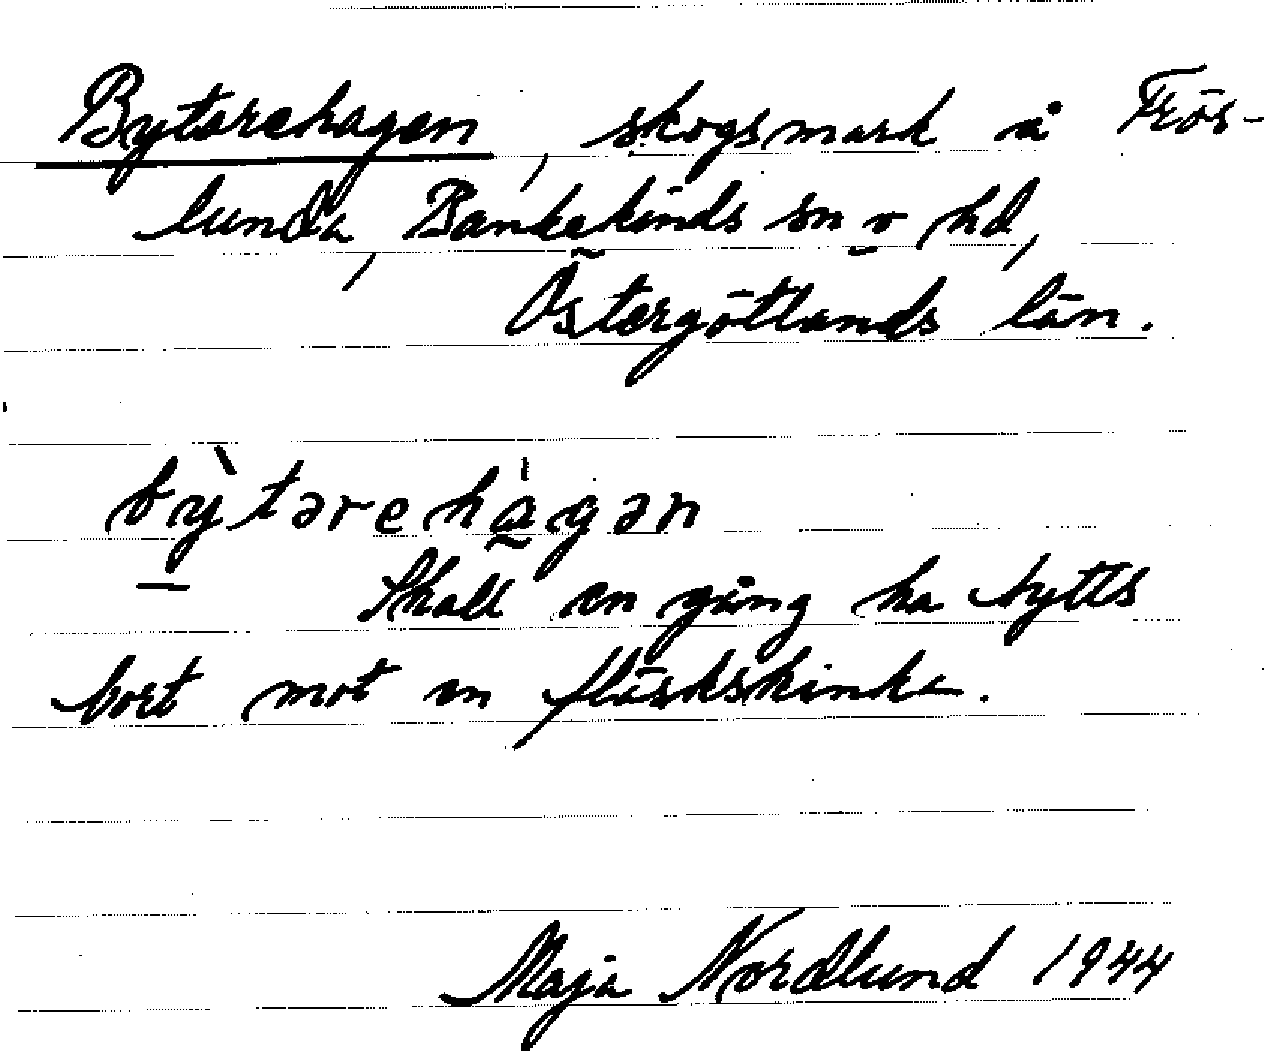 Bytarehagen, skogsmark å Frös-
lunda, Bankekinds sn o hd,
Östergötlands län.
bỳtarehàgan
Skall en gång ha bytts
bort mot en fläskskinka.
Maja Nordlund 1944